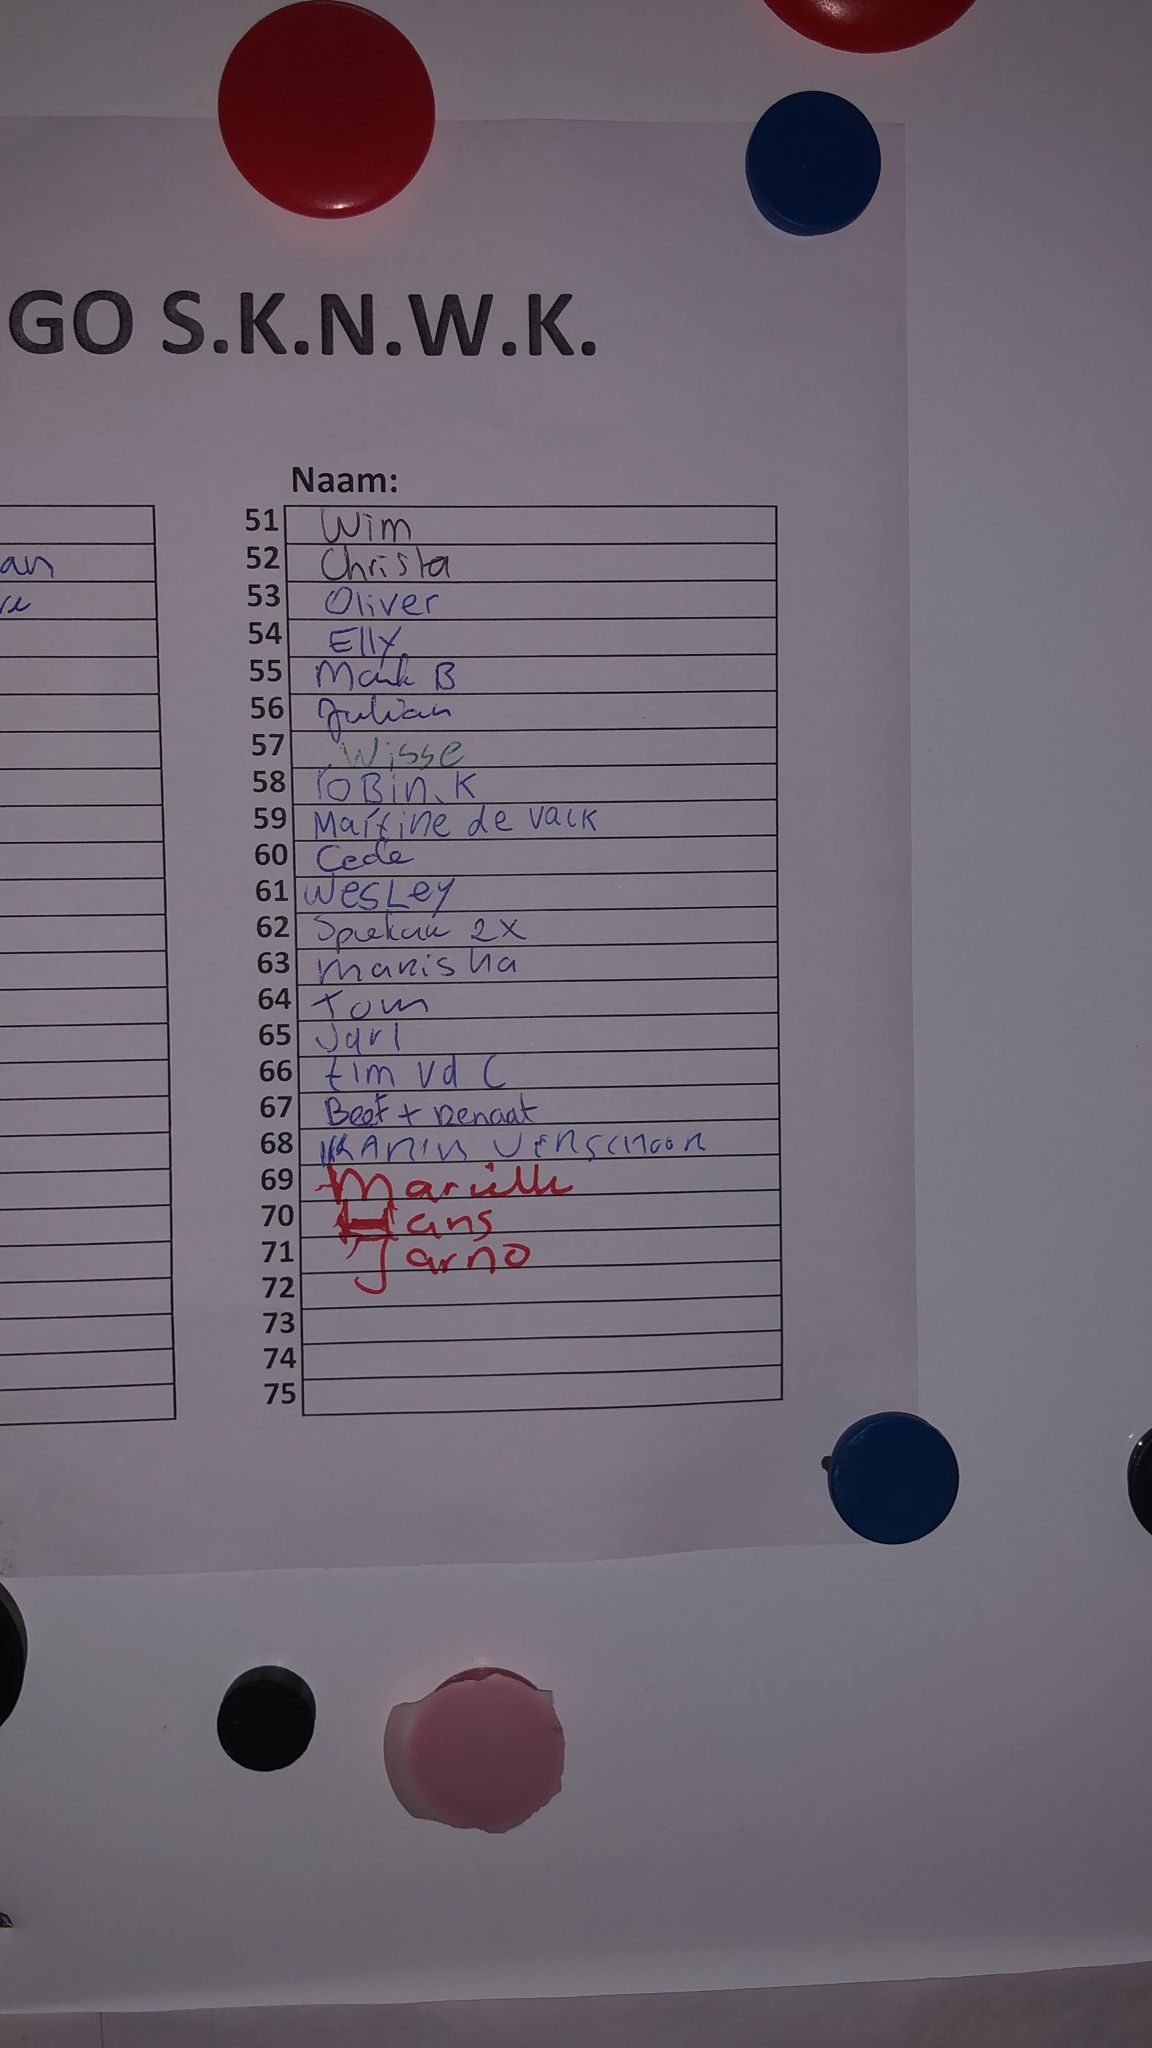 GO S.K.N.W.K.
Naam:
51 Wim
an
52 Christa
53 Oliver
54 Elly
55 Mark B
56 Julian
57 Wisse
58 roBin.K
59 Martine de Valk
60 Cede
61 WesLey
62 2x
63 Manisha
64 Tom
65 Jarl
66 tim vd C
67 Beet + Renaat
68 KARIN VERSCHOOR
69 Mariëlle
70 Hans
71 Jarno
72
73
74
75